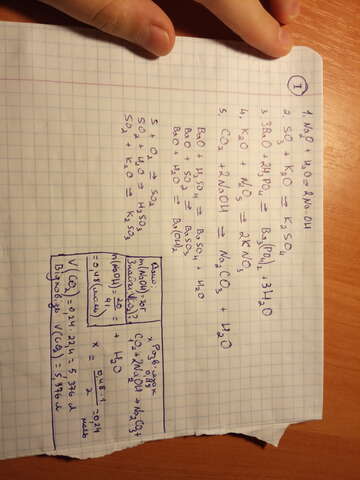 I
1. Na₂O + H₂O = 2NaOH
2. SO₃ + K₂O = K₂SO₄
3. 3BaO + 2H₃PO₄ = Ba₃(PO₄)₂ + 3H₂O
4. K₂O + N₂O₅ = 2KNO₃
5. CO₂ + 2NaOH = Na₂CO₃ + H₂O
BaO + H₂SO₄ = BaSO₄ + H₂O
BaO + SO₂ = BaSO₃
BaO + H₂O = Ba(OH)₂
S + O₂ = SO₂
SO₂ + H₂O = H₂SO₃
SO₂ + K₂O = K₂SO₃
Дано
m(NaOH) = 20г
V(CO₂)?
n(NaOH) = 20/41 =
= 0,48 (моль)
Розв'язок
x 0,48
CO₂ + 2NaOH → Na₂CO₃ +
2
+ H₂O
x = 0,48·1/2 = 0,24
моль
V(CO₂) = 0,24 · 22,4 = 5,376 л
V(CO₂) = 5,376 л